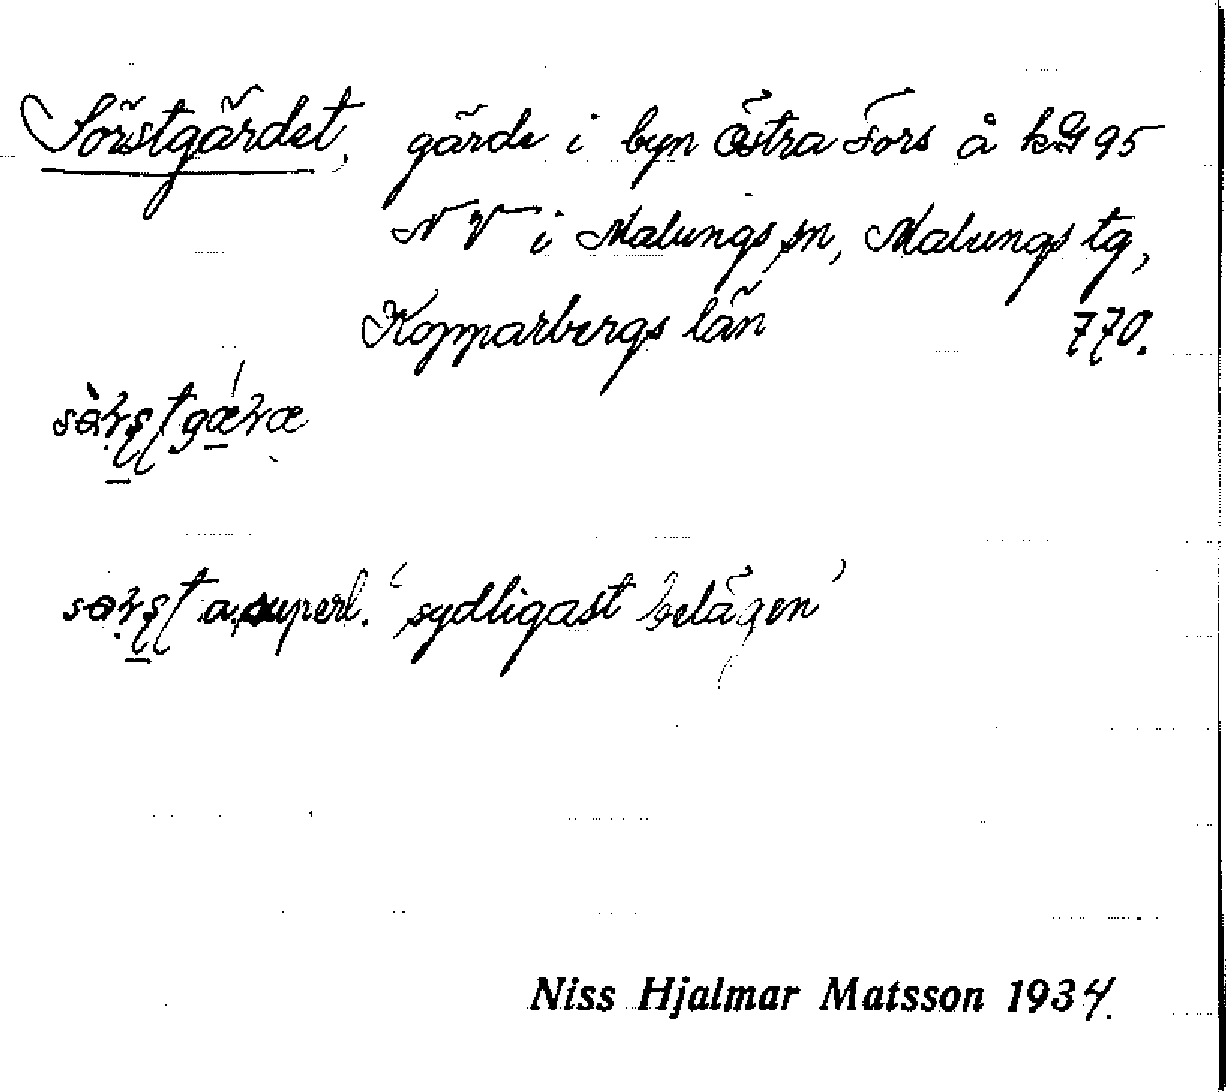 Sörstgärdet, gärde i byn Östra Fors å kbl 95
NV i Malungs sn, Malungs tg,
Kopparbergs län 770.
a. superl. 'sydligast belägen'
Niss Hjalmar Matsson 1934.